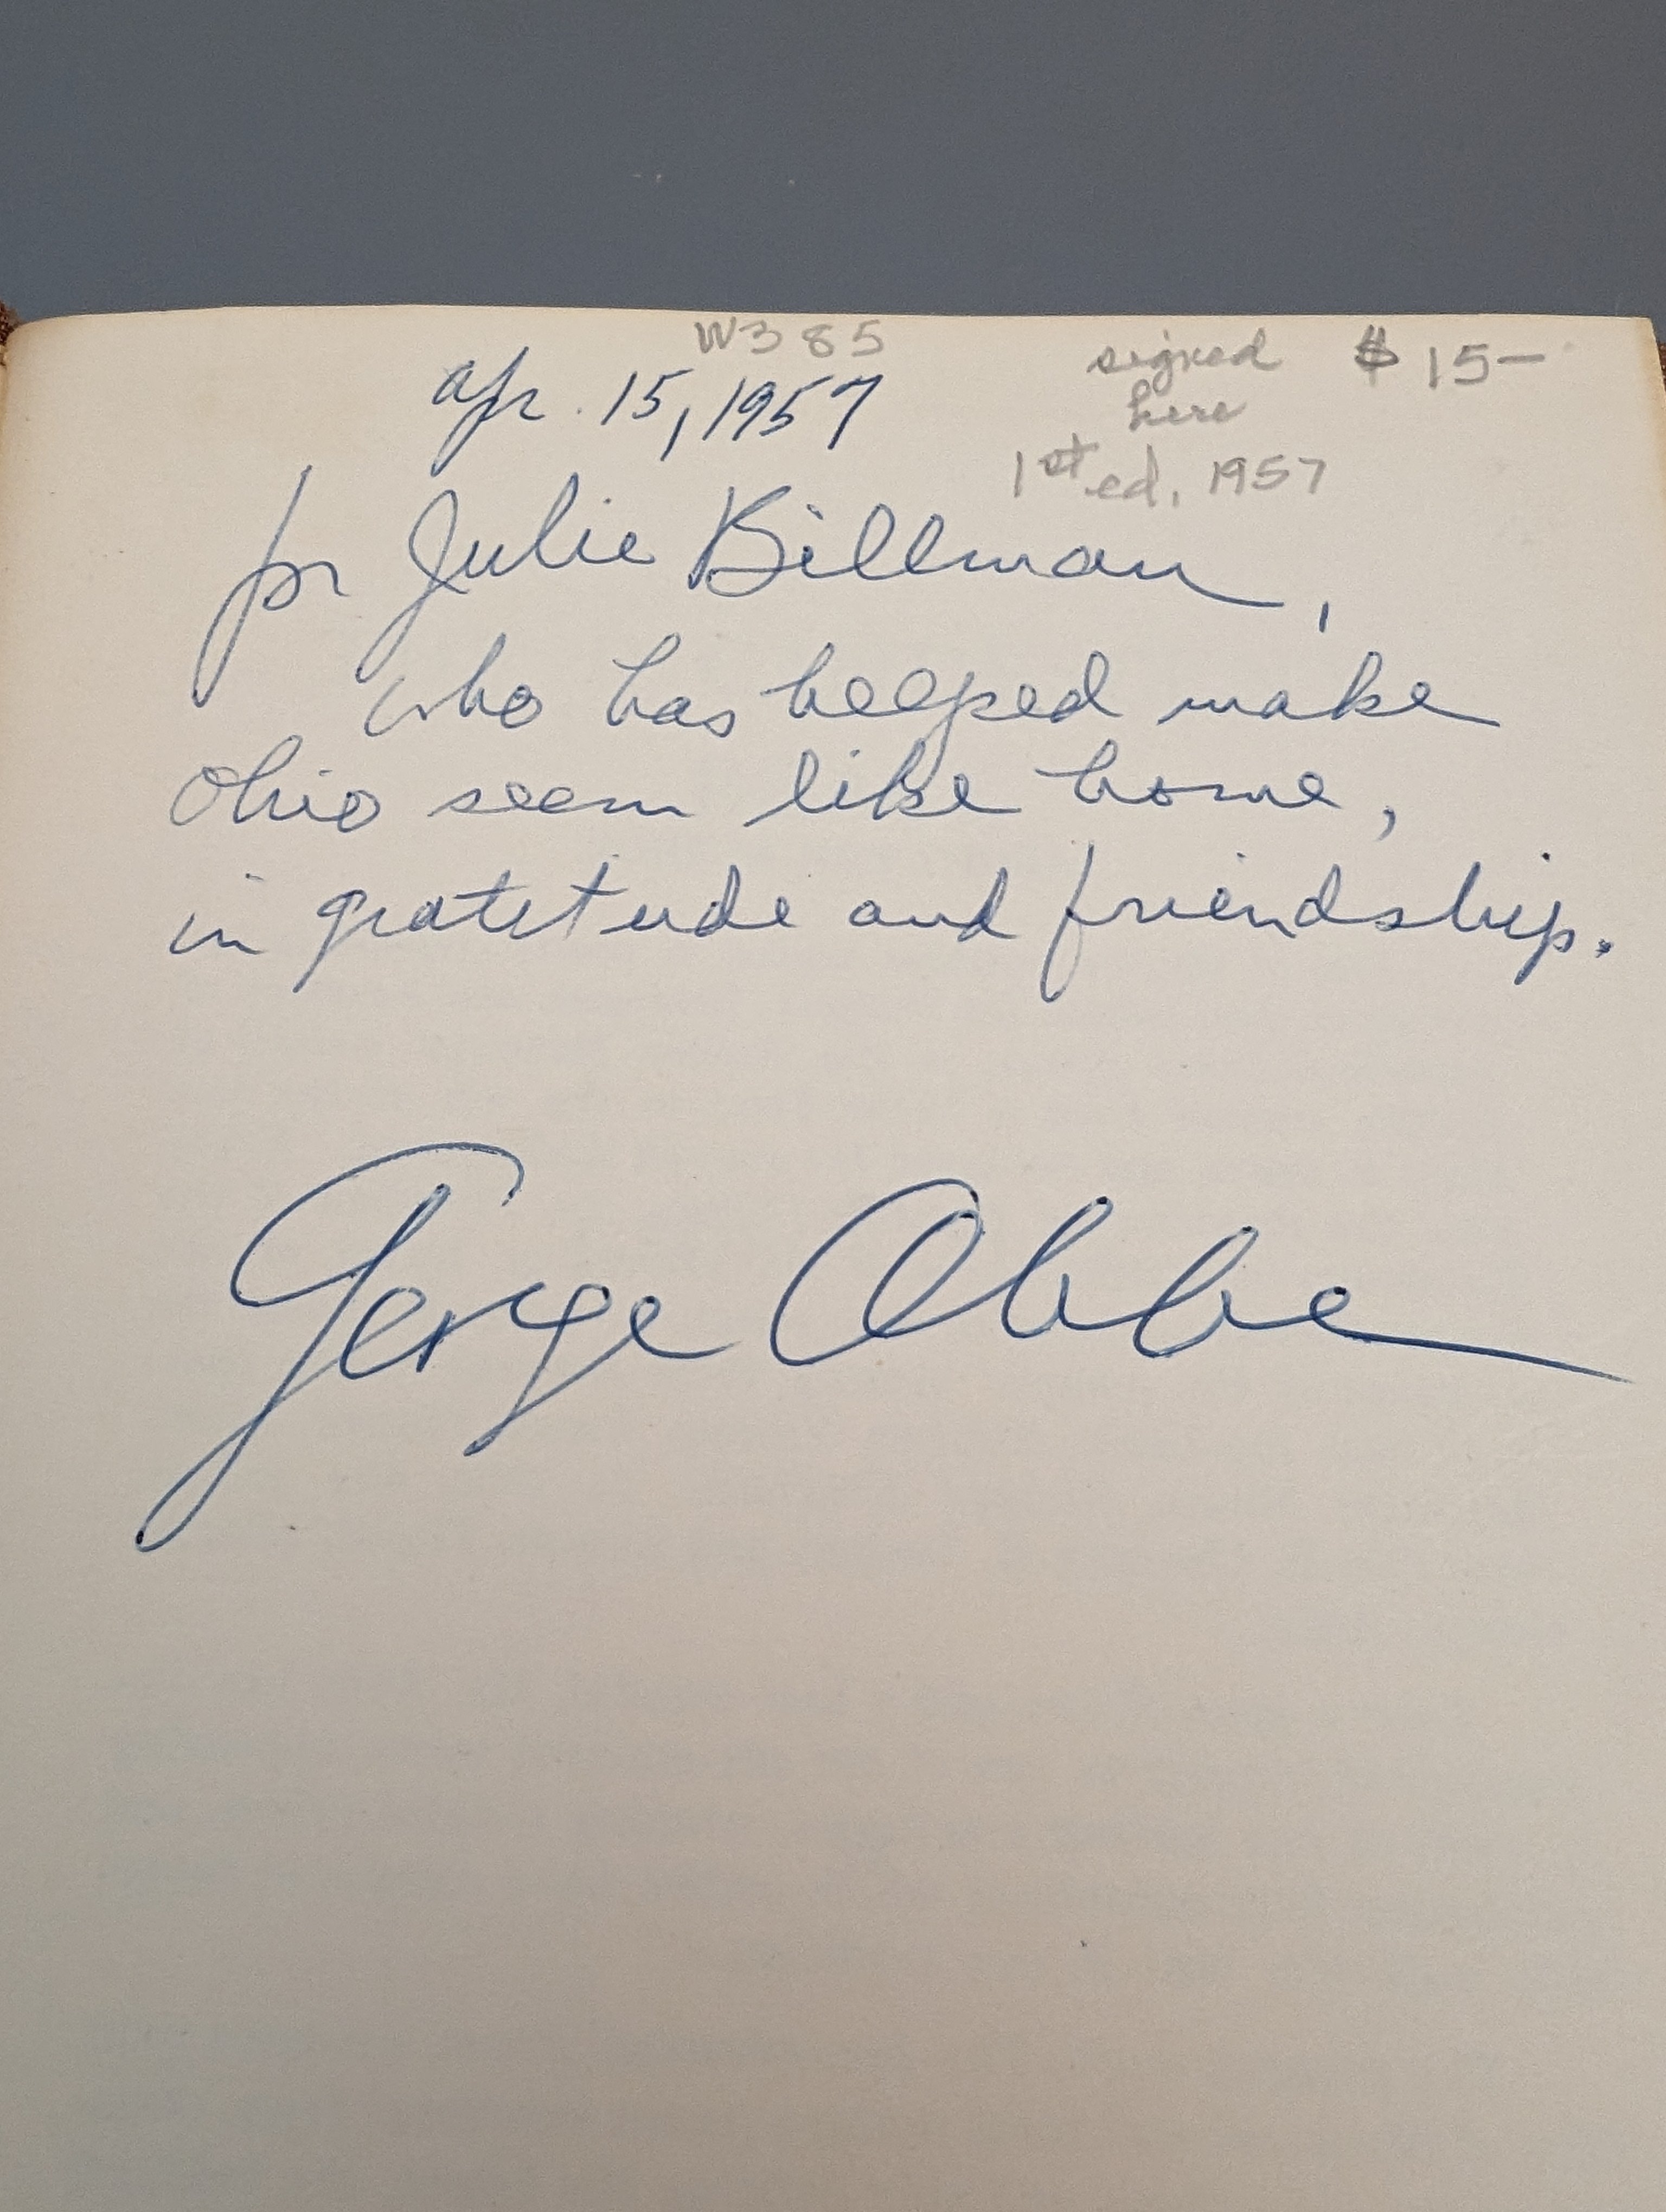 W385
signed $15-
here
Apr. 15, 1957
1st ed. 1957
for Julie Billman,
who has helped make
Ohio seem like home,
in gratitude and friendship.
George Abbe